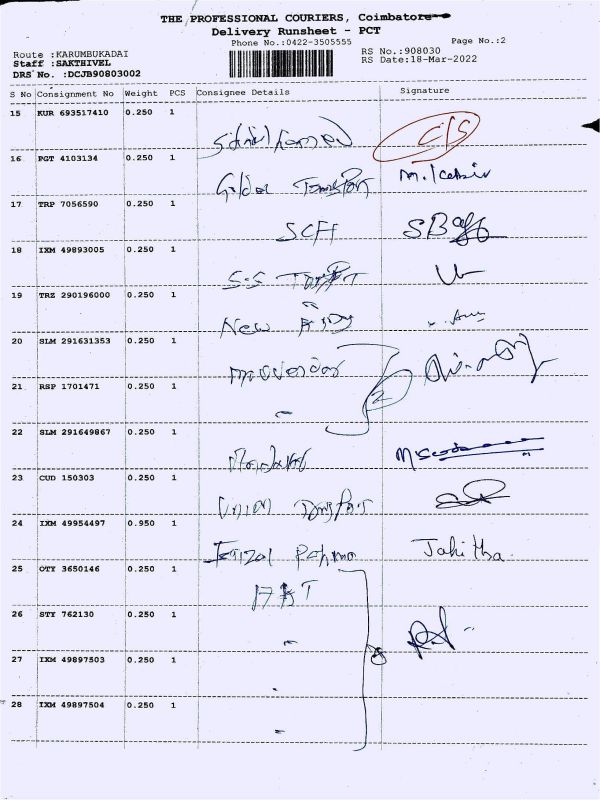 THE PROFESSIONAL COURIERS, Coimbatore
Delivery Runsheet - PCT
Phone No.:0422-3505555
Page No.:2
Route :KARUMBUKADAI
RS No.:908030
Staff :SAKTHIVEL
RS Date:18-Mar-2022
DRS No. :DCJB90803002
S No Consignment No Weight PCS Consignee Details Signature
15 KUR 693517410 0.250 1
C/S
16 PGT 4103134 0.250 1
Golden Transport
17 TRP 7056590 0.250 1
SCFF
18 IXM 49893005 0.250 1
S.S
19 TRZ 290196000 0.250 1
New
20 SLM 291631353 0.250 1
21 RSP 1701471 0.250 1
2
22 SLM 291649867 0.250 1
23 CUD 150303 0.250 1
Union Transport
24 IXM 49954497 0.950 1
Faizal Rahma Jahitha.
25 OTY 3650146 0.250 1
26 STY 762130 0.250 1
27 IXM 49897503 0.250 1
28 IXM 49897504 0.250 1